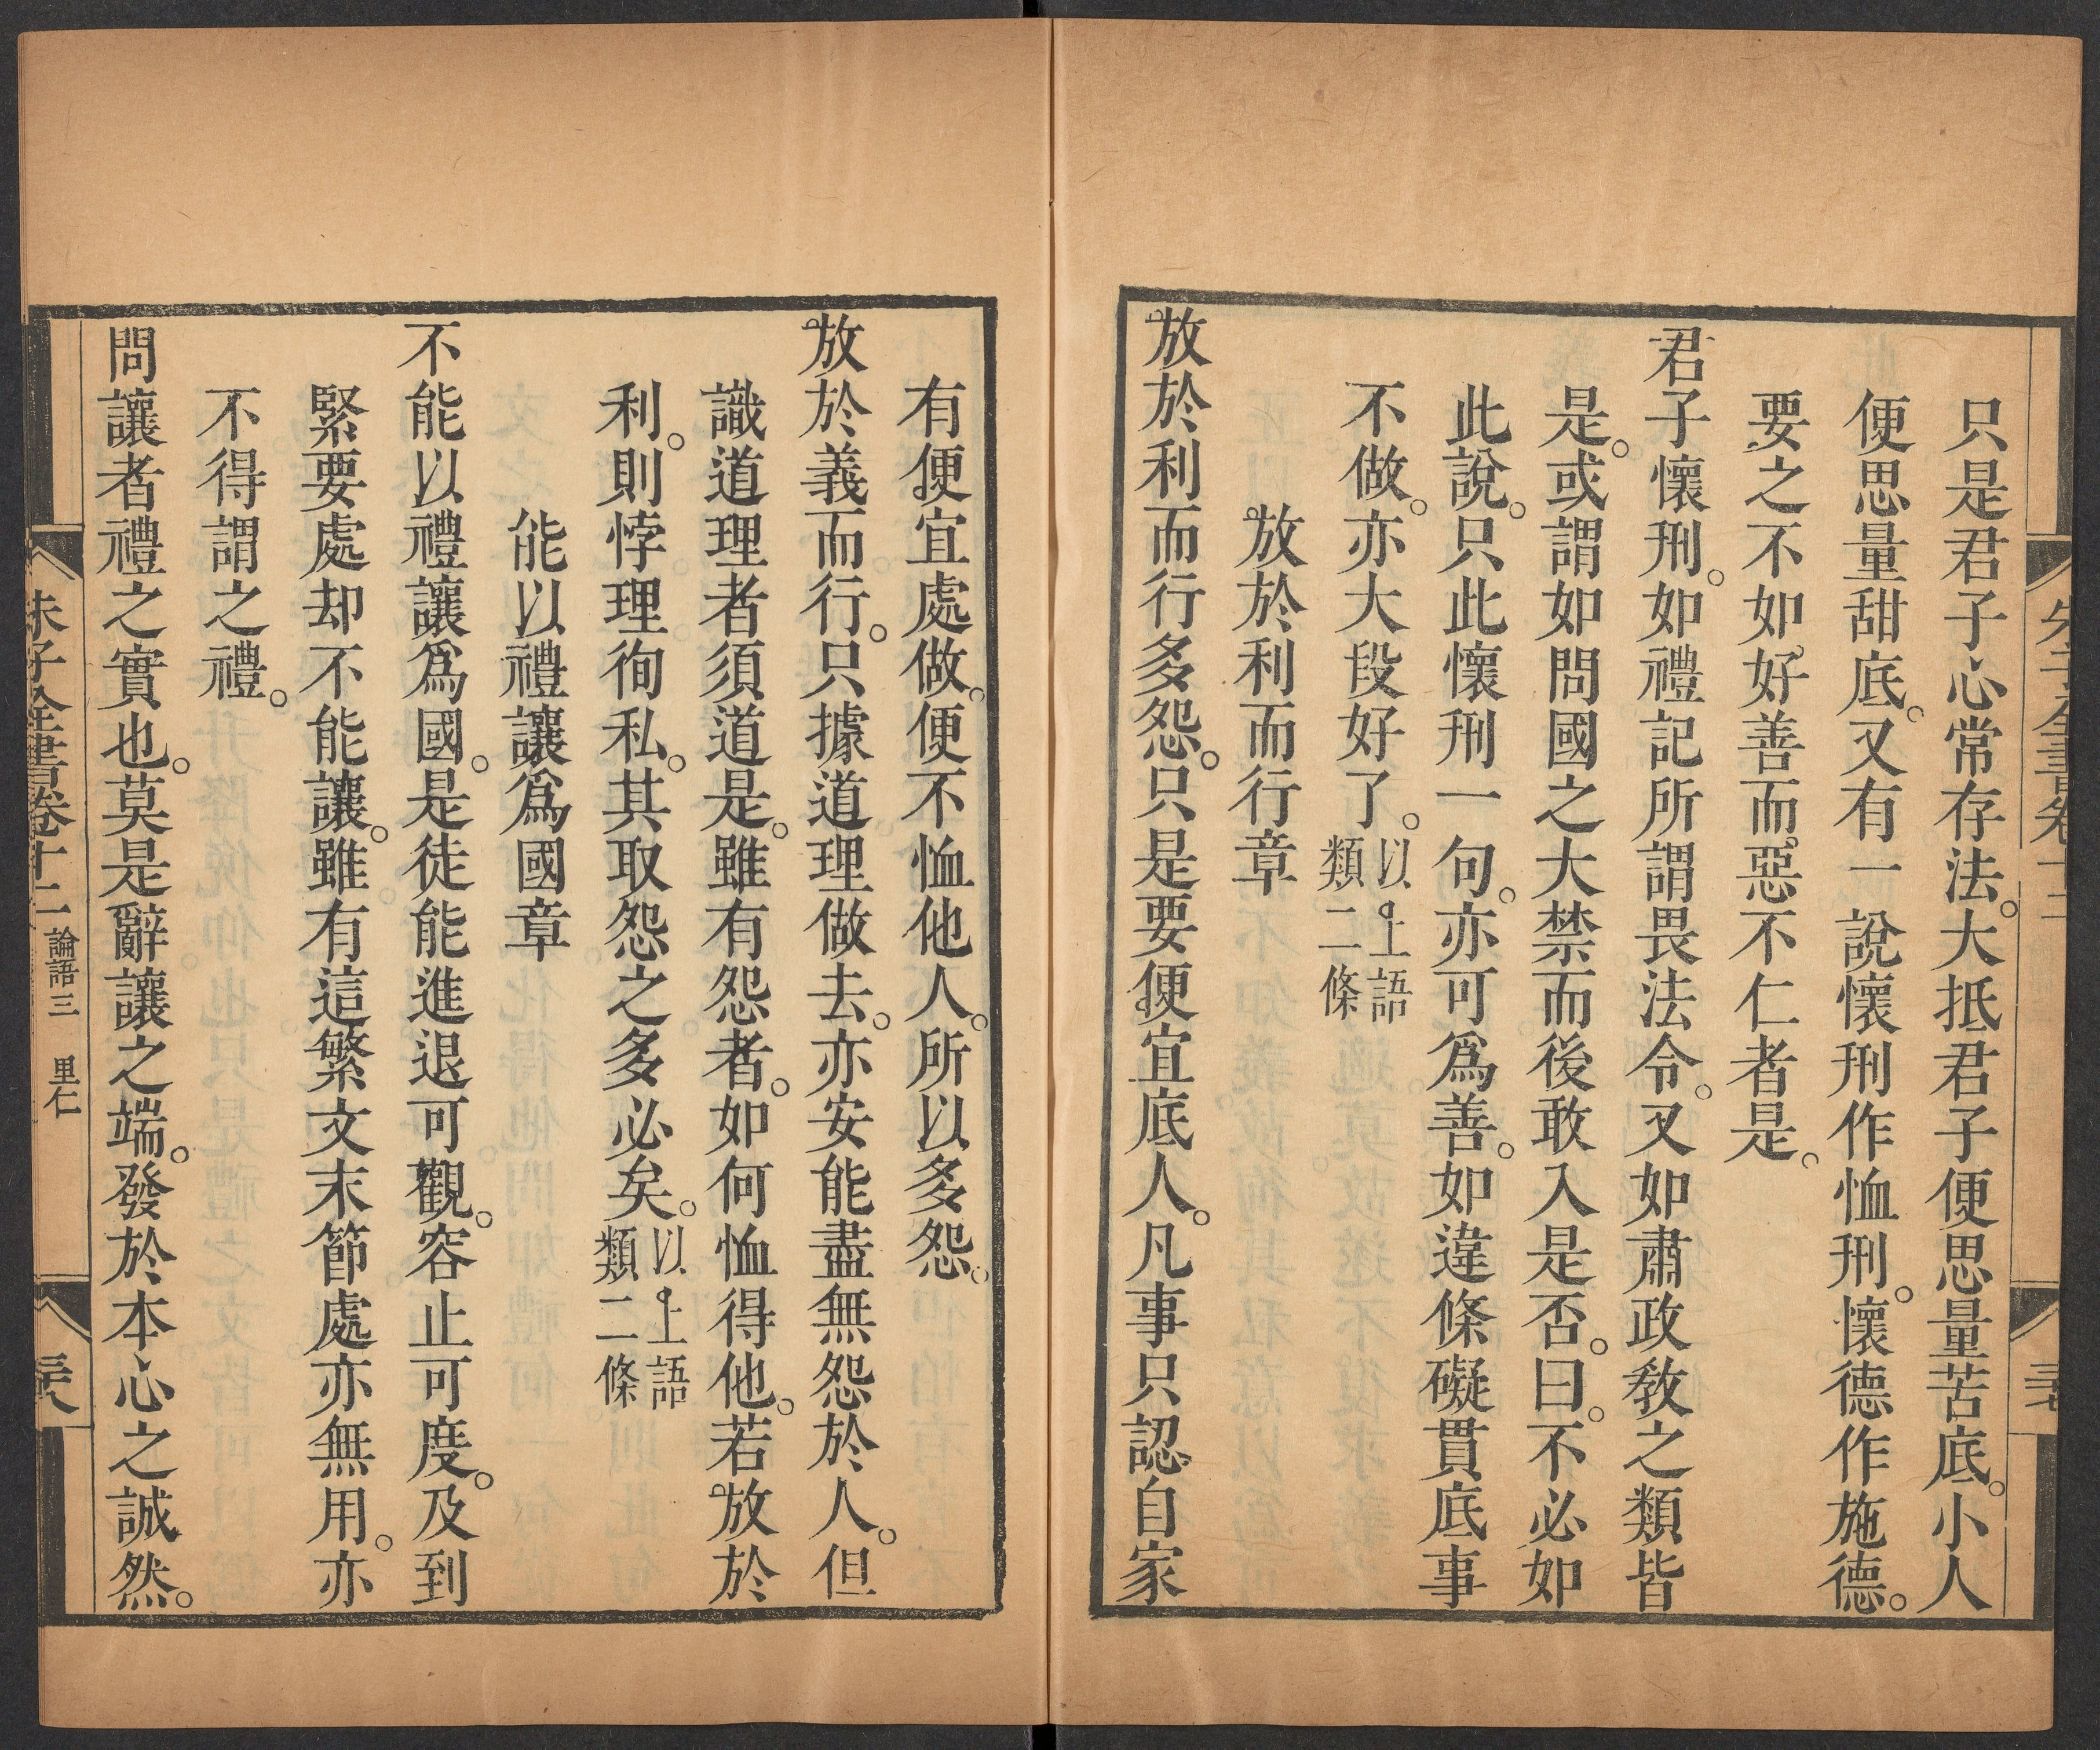 只是君子心常存法。大抵君子便思量苦底。小人
便思量甜底。又有一說懷刑作恤刑。懷德作施德。
要之不如好善而惡不仁者是。
君子懷刑。如禮記所謂畏法令。又如肅政教之類皆
是。或謂如問國之大禁而後敢入是否。曰。不必如
此說。只此懷刑一句。亦可爲善。如違條礙貫底事
不做。亦大段好了。以上語類二條
放於利而行章
放於利而行多怨。只是要便宜底人。凡事只認自家
有便宜處做。便不恤他人。所以多怨。
放於義而行。只據道理做去。亦安能盡無怨於人。但
識道理者須道是。雖有怨者。如何恤得他。若放於
利。則悖理徇私。其取怨之多必矣。以上語類二條
能以禮讓爲國章
不能以禮讓爲國。是徒能進退可觀。容止可度。及到
緊要處却不能讓。雖有這繁文末節處亦無用。亦
不得謂之禮。
問讓者禮之實也。莫是辭讓之端。發於本心之誠然。
朱子全書卷十二 論語三 里仁